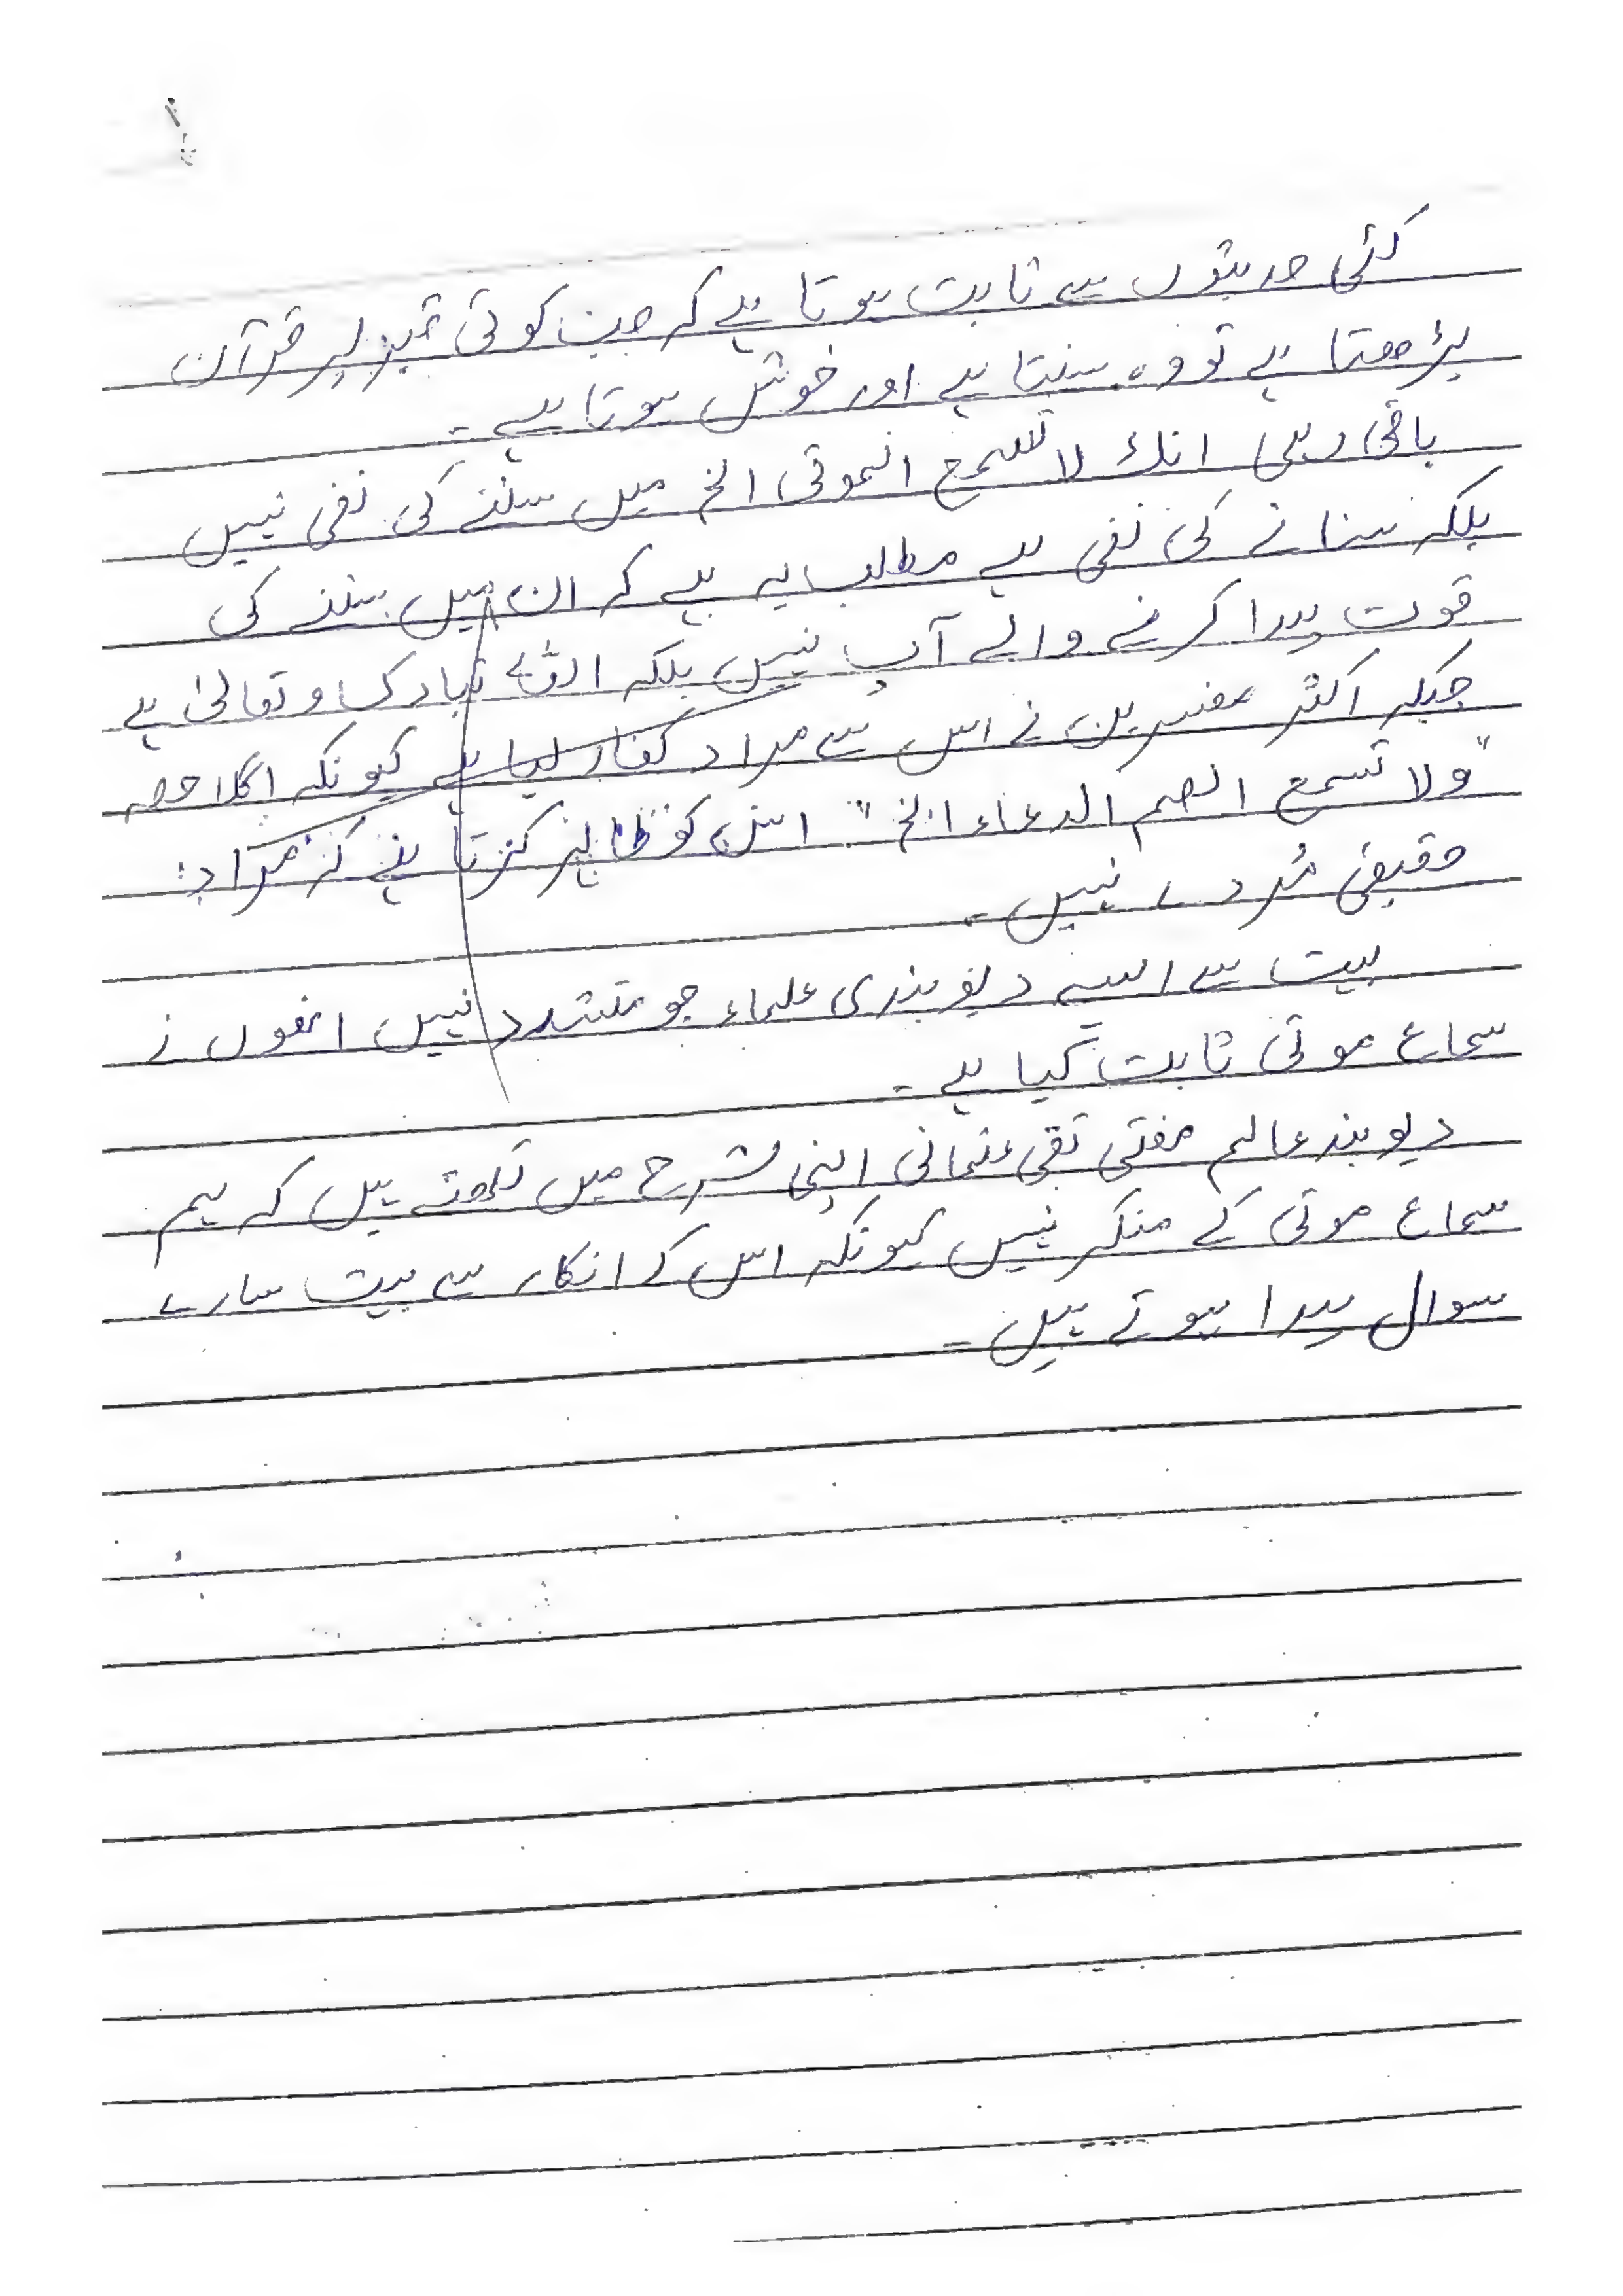 کئی حدیثوں سے ثابت ہوتا ہے کہ جب کوئی قبر پر قرآن
پڑھتا ہے تو وہ سنتا ہے اور خوش ہوتا ہے ۔
باقی رہی انك لا تسمع الموتی الخ میں سننے کی نفی نہیں
بلکہ سنانے کی نفی ہے مطلب یہ ہے کہ ان میں سننے کی
قوت پیدا کرنے والے آپ نہیں بلکہ اللہ تبارک و تعالیٰ ہے
جبکہ اکثر مفسرین نے اس سے مراد کفار لیا ہے کیونکہ اگلا حصہ
"ولا تسمع الصم الدعاء الخ" اس کو ظاہر کرتا ہے کہ مراد
حقیقی مُردے نہیں ۔
بہت سے ایسے دیوبندی علماء جو متشدد نہیں انھوں نے
سماع موتی ثابت کیا ہے ۔
دیوبند عالم مفتی تقی عثمانی اپنی شرح میں لکھتے ہیں کہ ہم
سماع موتی کے منکر نہیں کیونکہ اس کے انکار سے بہت سارے
سوال پیدا ہوتے ہیں ۔